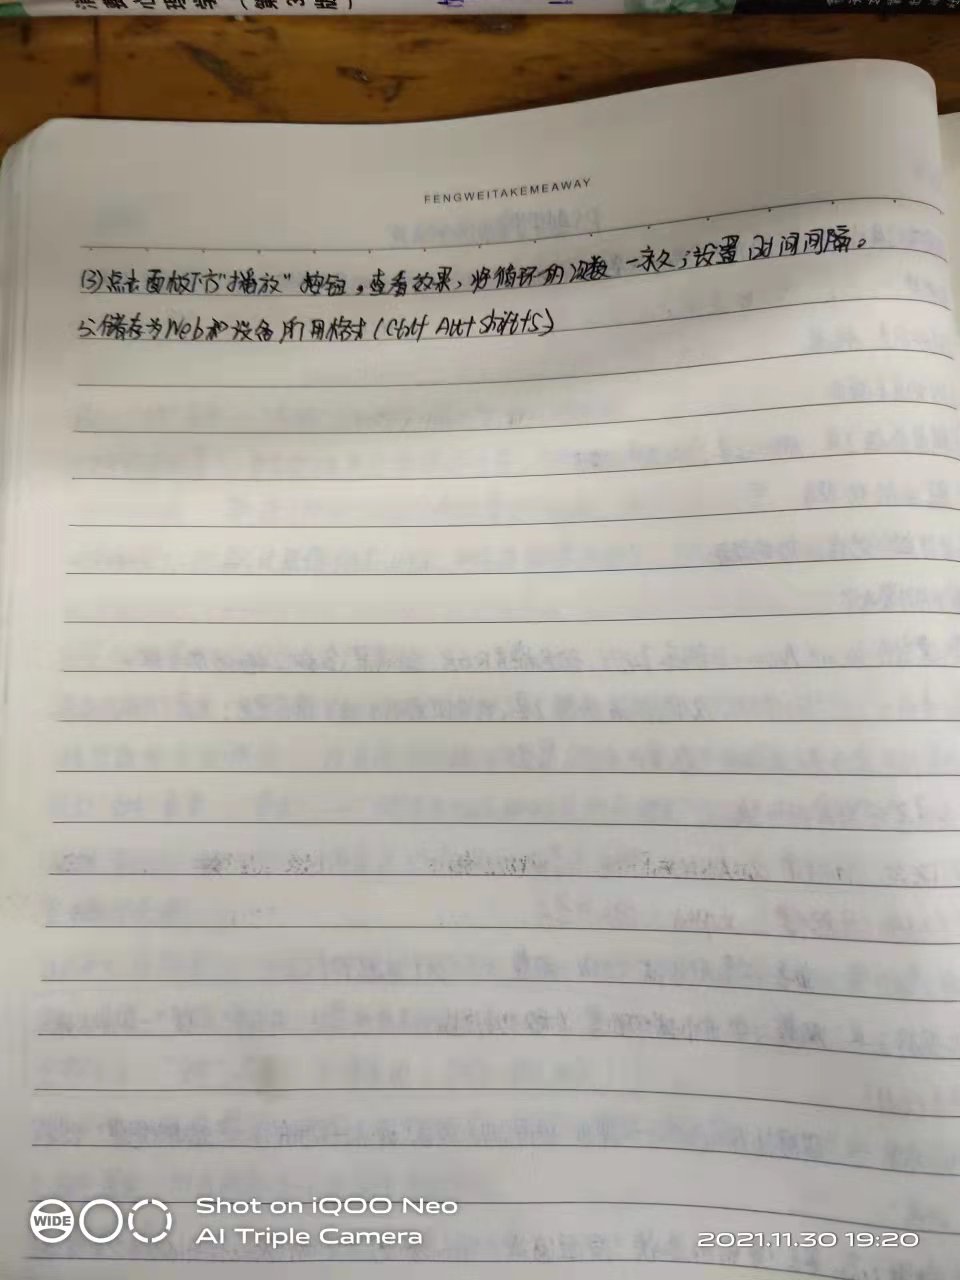 消费心理学(第3版)
FENGWEITAKEMEAWAY
(3)点击面板下方“播放”按钮,查看效果,将循环的次数一永久;设置时间间隔。
5:储存为Web和设备所用格式(Ctrl+Alt+Shift+S)
WIDE
Shot on iQOO Neo
AI Triple Camera
2021.11.30 19:20